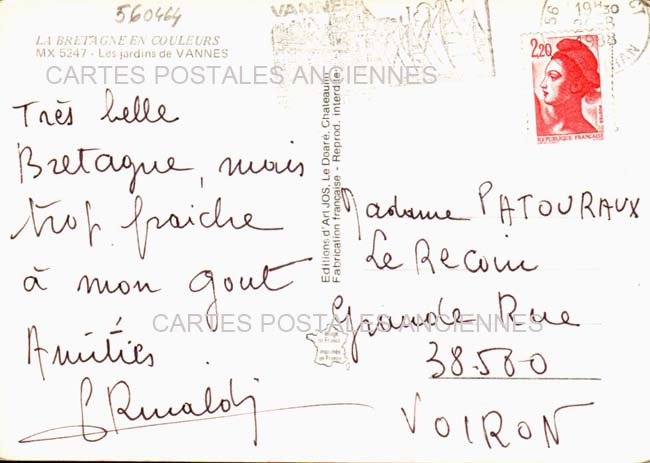 560464
LA BRETAGNE EN COULEURS
MX 5247 - Les jardins de VANNES
CARTES POSTALES ANCIENNES
Très belle
Bretagne, mais
trop fraiche
à mon gout
Amitiés
Rinaldi
Editions d'Art JOS, Le Doaré, Chateaulin
Fabrication française - Reprod. interdite
VANNES
56
19H30
1988
2,20
REPUBLIQUE FRANCAISE
Madame PATOURAUX
Le Recoin
Grande Rue
38.500
VOIRON
CARTES POSTALES ANCIENNES